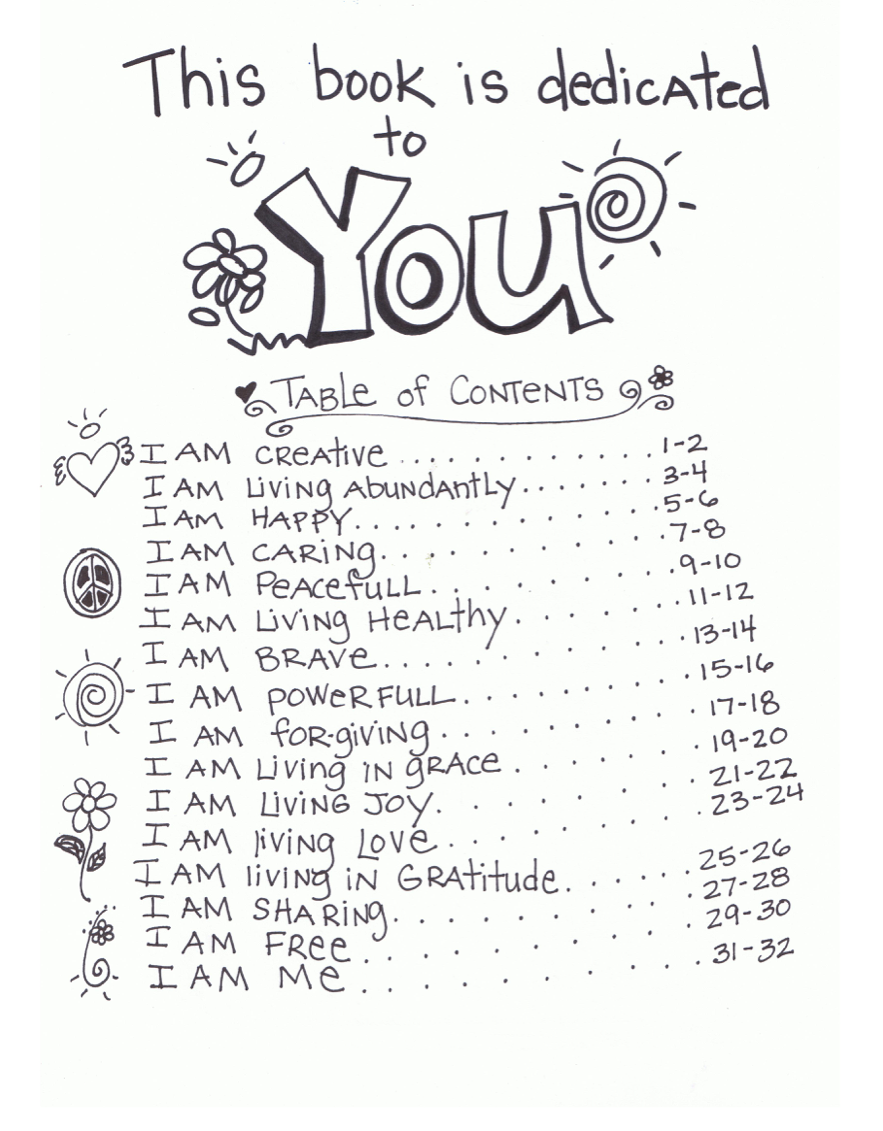 This book is dedicated
to
You
Table of Contents
I AM CREATIVE ............ 1-2
I AM LIVING ABUNDANTLY ....... 3-4
I AM HAPPY ........... 5-6
I AM CARING ........... 7-8
I AM PEACEFULL ......... 9-10
I AM LIVING HEALTHY ....... 11-12
I AM BRAVE ........... 13-14
I AM POWERFULL ......... 15-16
I AM FOR-GIVING ......... 17-18
I AM LIVING IN GRACE ....... 19-20
I AM LIVING JOY ......... 21-22
I AM LIVING LOVE ......... 23-24
I AM LIVING IN GRATITUDE ...... 25-26
I AM SHARING .......... 27-28
I AM FREE ........... 29-30
I AM ME ........... 31-32